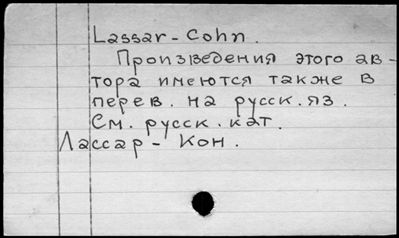 Lassar-Cohn.
Произведения этого ав-
тора имеются также в
перев. на русск. яз.
См. русск. кат.
Лассар-Кон.